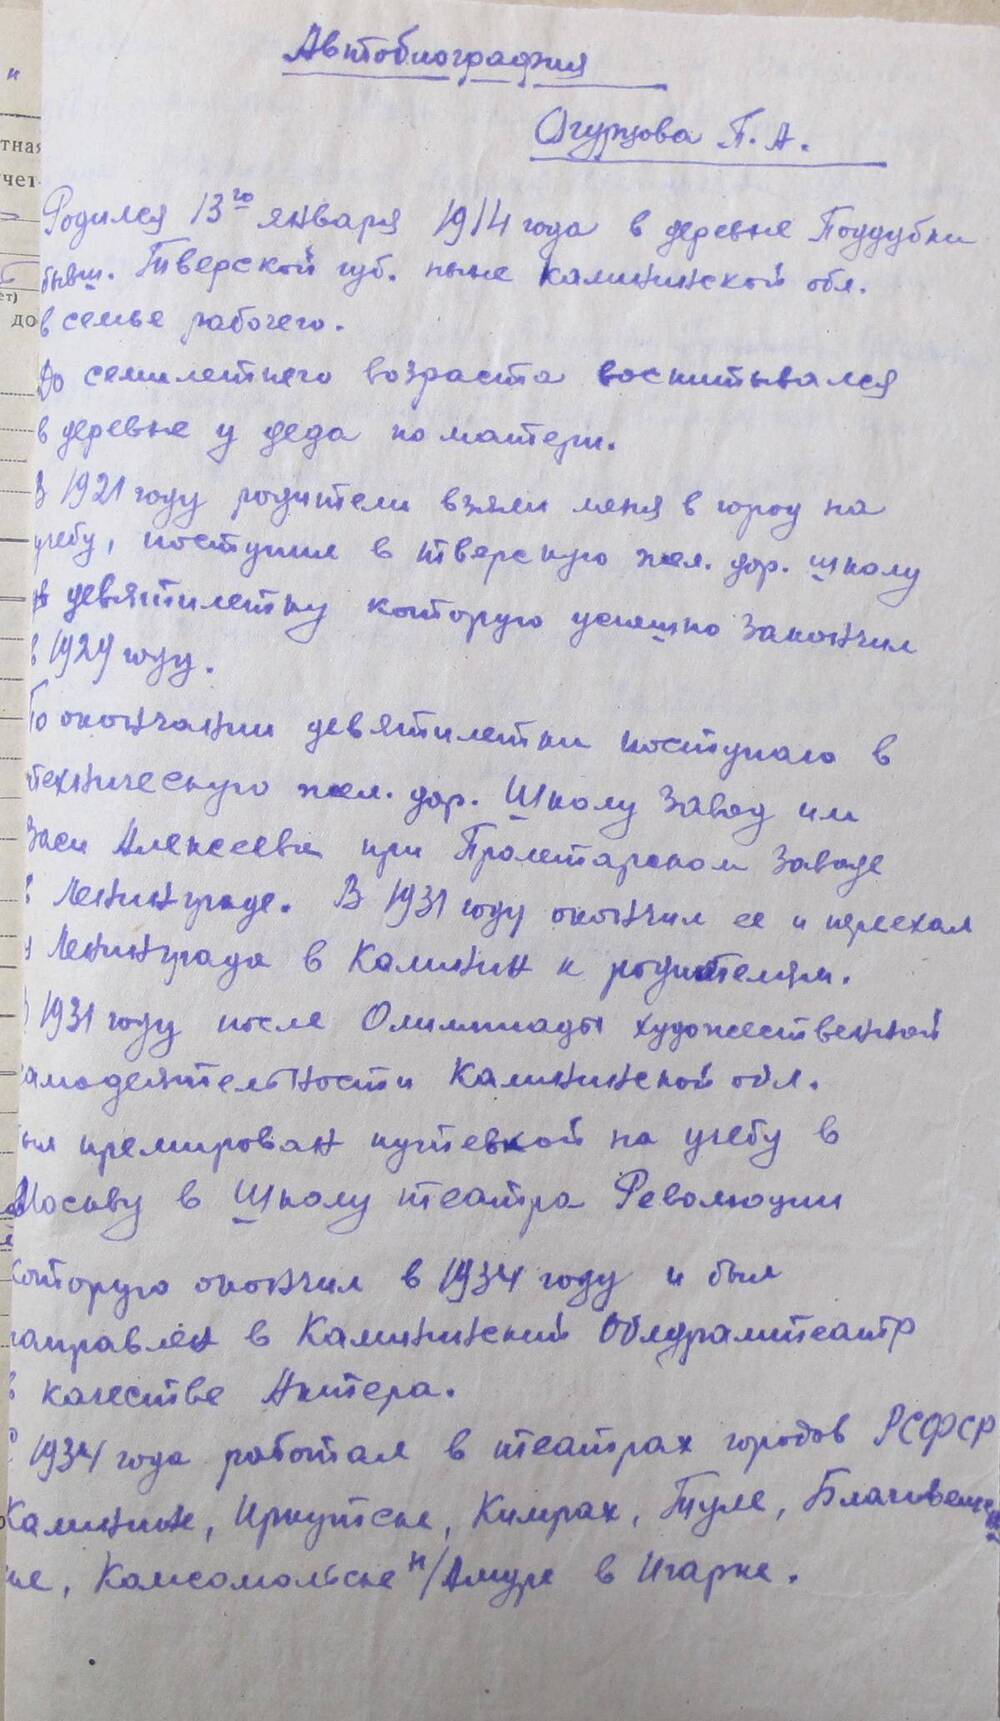 Автобиография
Огурцова П. А.
Родился 13го января 1914 года в деревне Поддубки
бывш. Тверской губ. ныне Калининской обл.
в семье рабочего.
До семилетнего возраста воспитывался
в деревне у деда по матери.
В 1921 году родители взяли меня в город на
учебу, поступил в тверскую жел. дор. школу
девятилетку которую успешно закончил
в 1929 году.
По окончании девятилетки поступаю в
техническую жел. дор. Школу Завод им
Васи Алексеева при Пролетарском Заводе
в Ленинграде. В 1931 году окончил ее и переехал
из Ленинграда в Калинин к родителям.
В 1931 году после Олимпиады художественной
самодеятельности Калининской обл.
был премирован путевкой на учебу в
Москву в Школу театра Революции
которую окончил в 1934 году и был
направлен в Калининский Облдрамтеатр
в качестве Актера.
С 1934 года работал в театрах городов РСФСР
Калинине, Иркутске, Кимрах, Туле, Благовещен
ске, Комсомольске н/Амуре в Игарке.
тная
чет
ет)
до